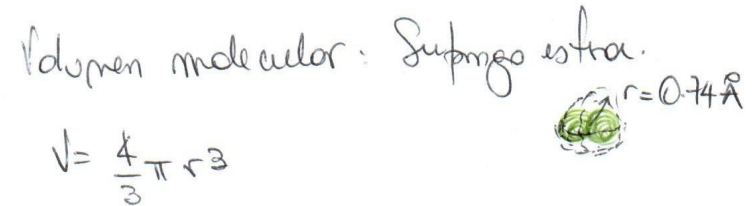 Volumen molecular: Supongo esfera.
r = 0.74 Å
V = 4/3 π r³